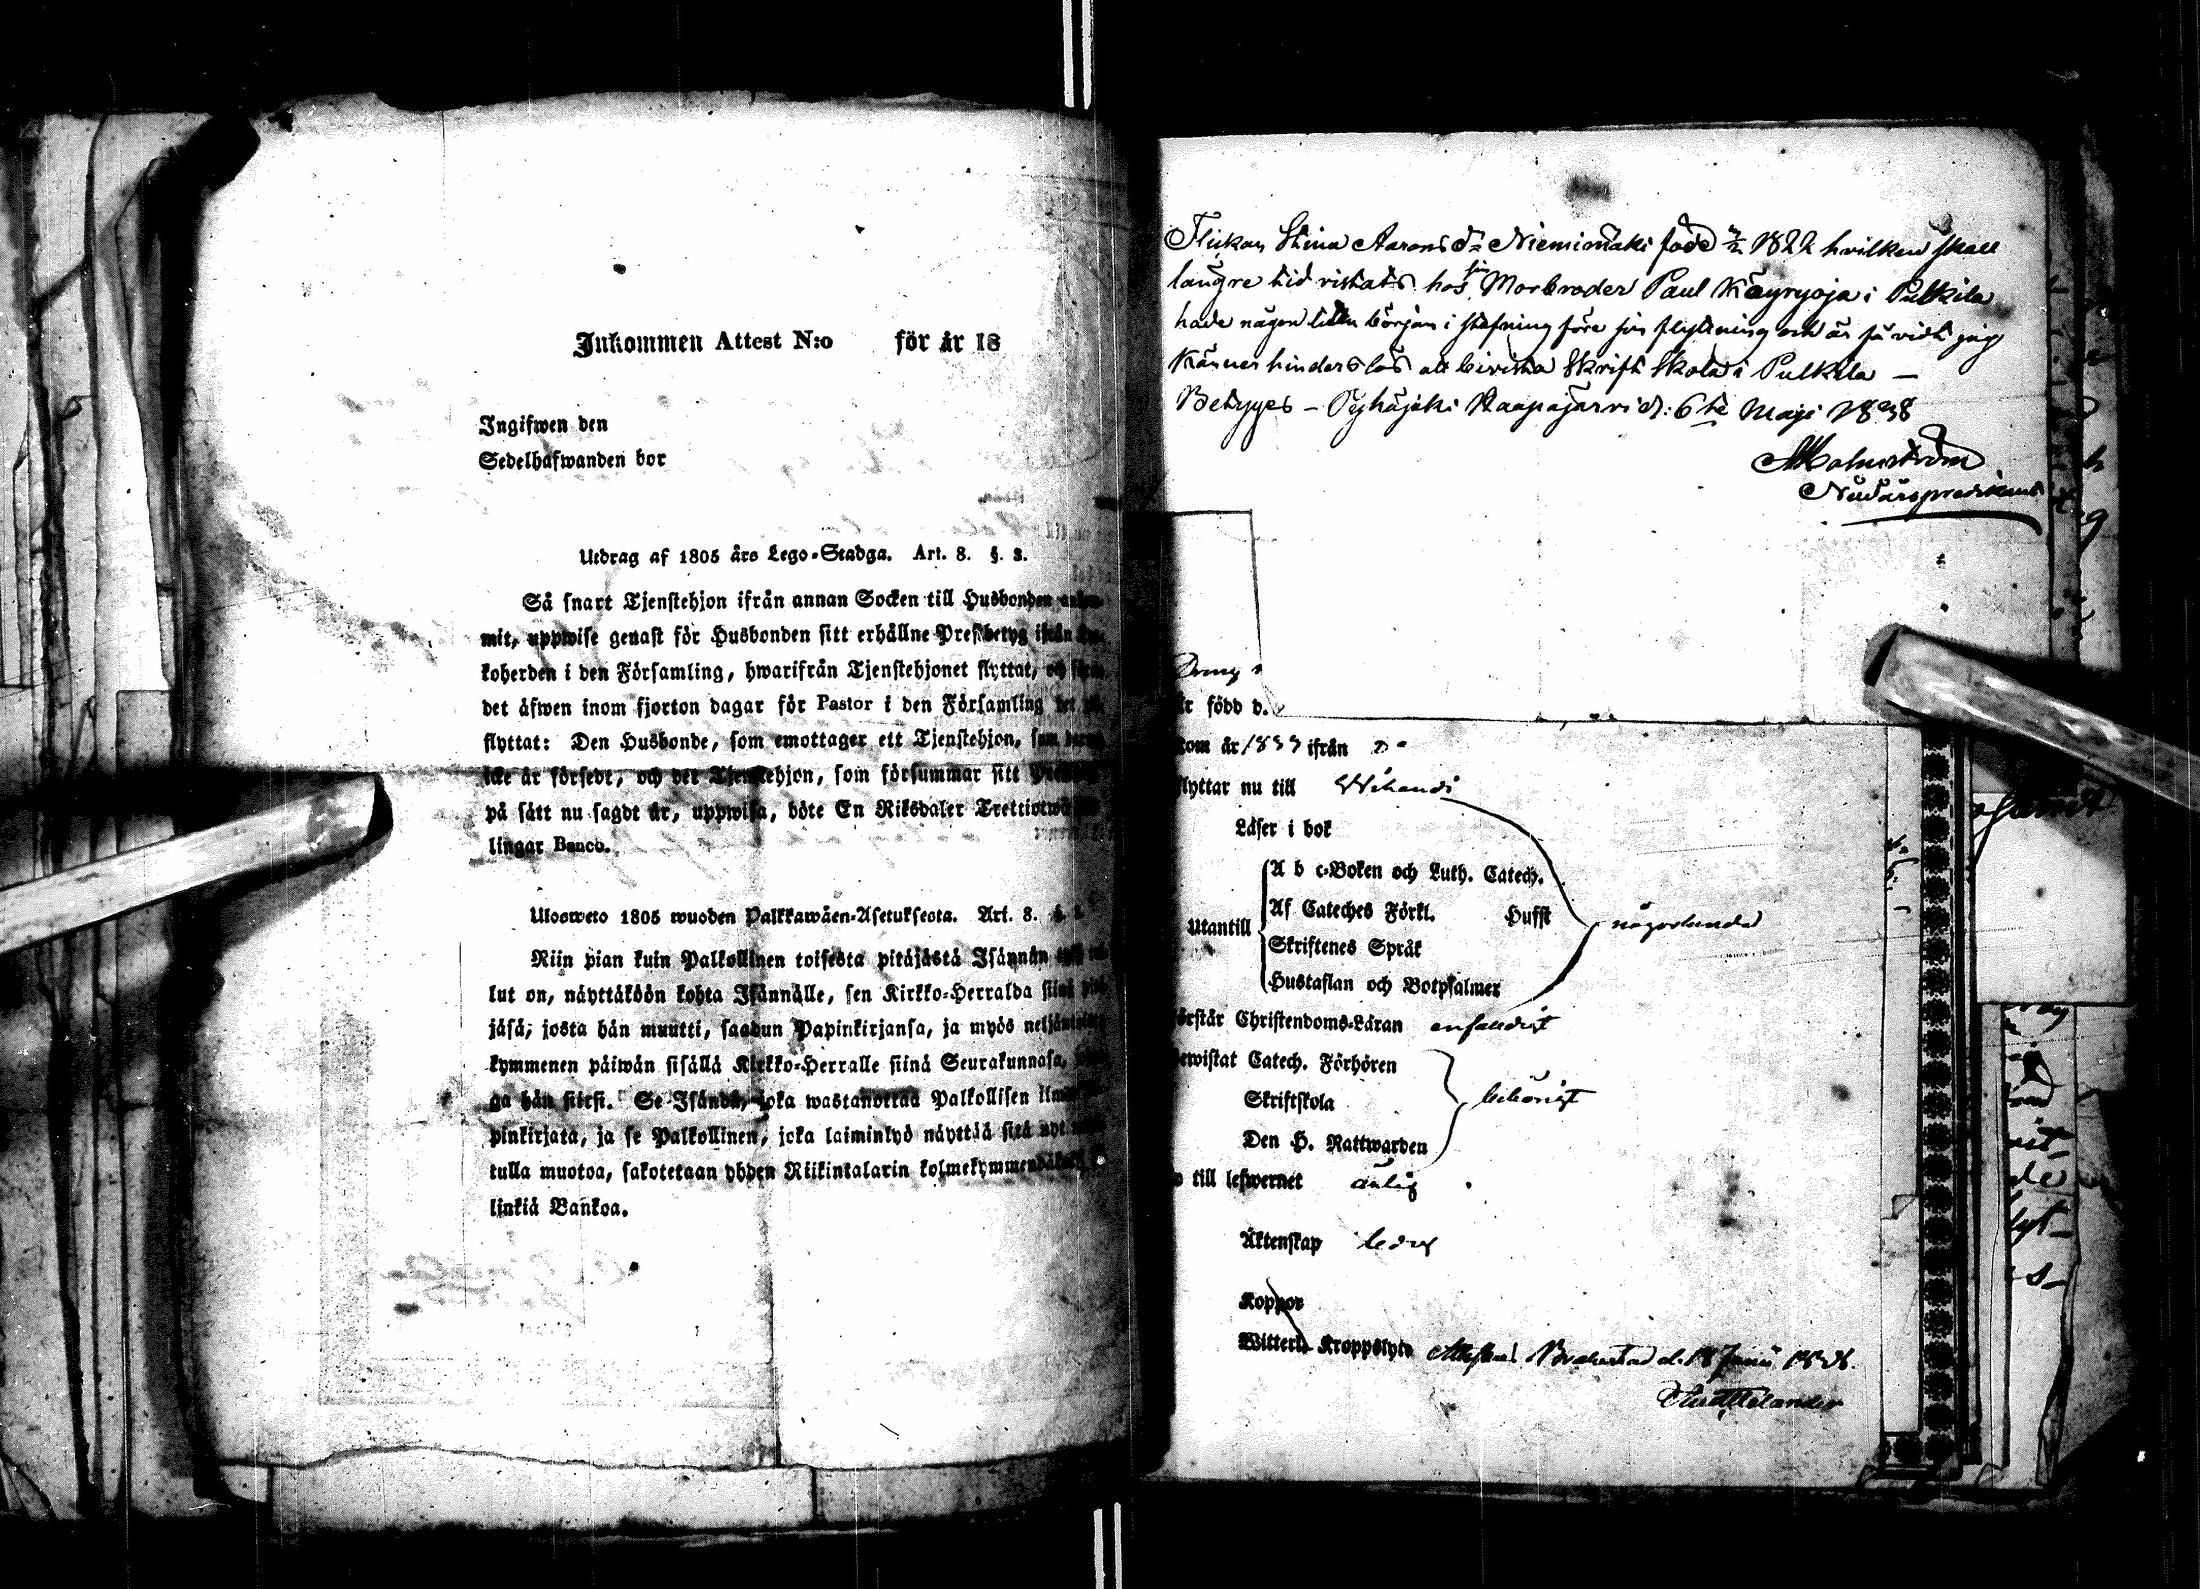 Inkommen Attest N:o för år 18
Ingifwen den
Sedelhafwanden bor
Utdrag af 1805 års Lego-Stadga. Art. 8. §. 3.
Så snart Tjenstehjon ifrån annan Socken till Husbonden
mit, uppwise genast för Husbonden sitt erhållne Prestbetyg ifrån
koherden i den Församling, hwarifrån Tjenstehjonet flyttat, och
det äfwen inom fjorton dagar för Pastor i den Församling det
flyttat: Den Husbonde, som emottager ett Tjenstehjon, som
icke är försedt, och det Tjenstehjon, som försummar sitt
på sätt nu sagdt är, uppwisa, böte En Riksdaler Trettiotwå
lingar Banco.
Uloswето 1805 wuoden Palkkawäen-Asetuksesta. Art. 8.
Niin pian kuin Palkollinen toisesta pitäjästä Isännän
lut on, näyttäköön kohta Isännälle, sen Kirkko-Herralda siinä
jäsä, josta hän muutti, saadun Papinkirjansa, ja myös neljäntoista
kymmenen päiwän sisällä Kirkko-Herralle siinä Seurakunnasa,
ga hän siirsi. Se Isändä, joka wastanottaa Palkollisen ilman
pinkirjata, ja se Palkollinen, joka laiminlyö näyttää sitä nyt
tulla muotoa, sakotetaan yhden Riikintalarin kolmekymmendäkaksi
linkiä Bankoa.
Flickan Stina Aarons dr Niemimäki född 1822 hvilken skall
längre tid vistats hos sin Morbroder Paul Käyryoja i Pulkila
hade någon liten början i stafning före sin flyttning och är så vidt jag
känner hinderslös att bivista Skrift Skola i Pulkila —
Betyges — Pyhäjoki Haapajärvi d: 6te Maji 1838
Malmström
Nödårspredikant
är född d.
kom år 1833 ifrån
flyttar nu till Wihandi
Läser i bok
A b c-Boken och Luth. Catech.
Af Cateches Förkl. Hufst någorlunda
Utantill
Skriftenes Språk
Hustaflan och Botpsalmer
förstår Christendoms-Läran enfaldigt
bewistat Catech. Förhören
Skriftskola behörigt
Den H. Nattwarden
till lefwernet ärlig
Äktenskap ledig
Koppor
Witterl. Kroppslyte Attesteras Brahestad d. 18 Junii 1838.